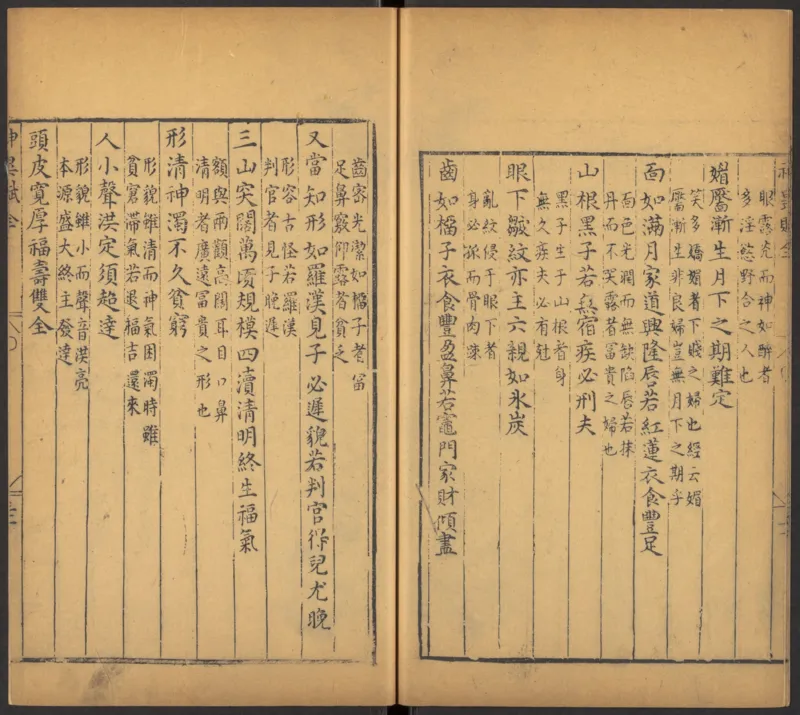 眼露光而神如醉者
多淫慾野合之人也
媚靨漸生月下之期難定
笑多嬌媚者下賤之婦也經云媚
靨漸生非良婦豈無月下之期乎
面如滿月家道興隆唇若紅蓮衣食豐足
面色光潤而無缺陷唇若抹
丹而不哭露者富貴之婦也
山根黑子若無宿疾必刑夫
黑子生于山根者身
無久疾夫必有尅
眼下皺紋亦主六親如氷炭
亂紋侵于眼下者
身必孤而骨肉疎
齒如榴子衣食豐盈鼻若竈門家財傾盡
齒密光潔如榴子者富
足鼻竅仰露者貧乏
又當知形如羅漢見子必遲貌若判官得兒尤晚
形容古怪若羅漢
判官者見子晚遲
三山突闊萬頃規模四瀆清明終生福氣
額與兩顴高闊耳目口鼻
清明者廣遠富貴之形也
形清神濁不久貧窮
形貌雖清而神氣困濁時雖
貧窘滯氣若退福吉還來
人小聲洪定須超達
形貌雖小而聲音洪亮
本源盛大終主發達
頭皮寬厚福壽雙全